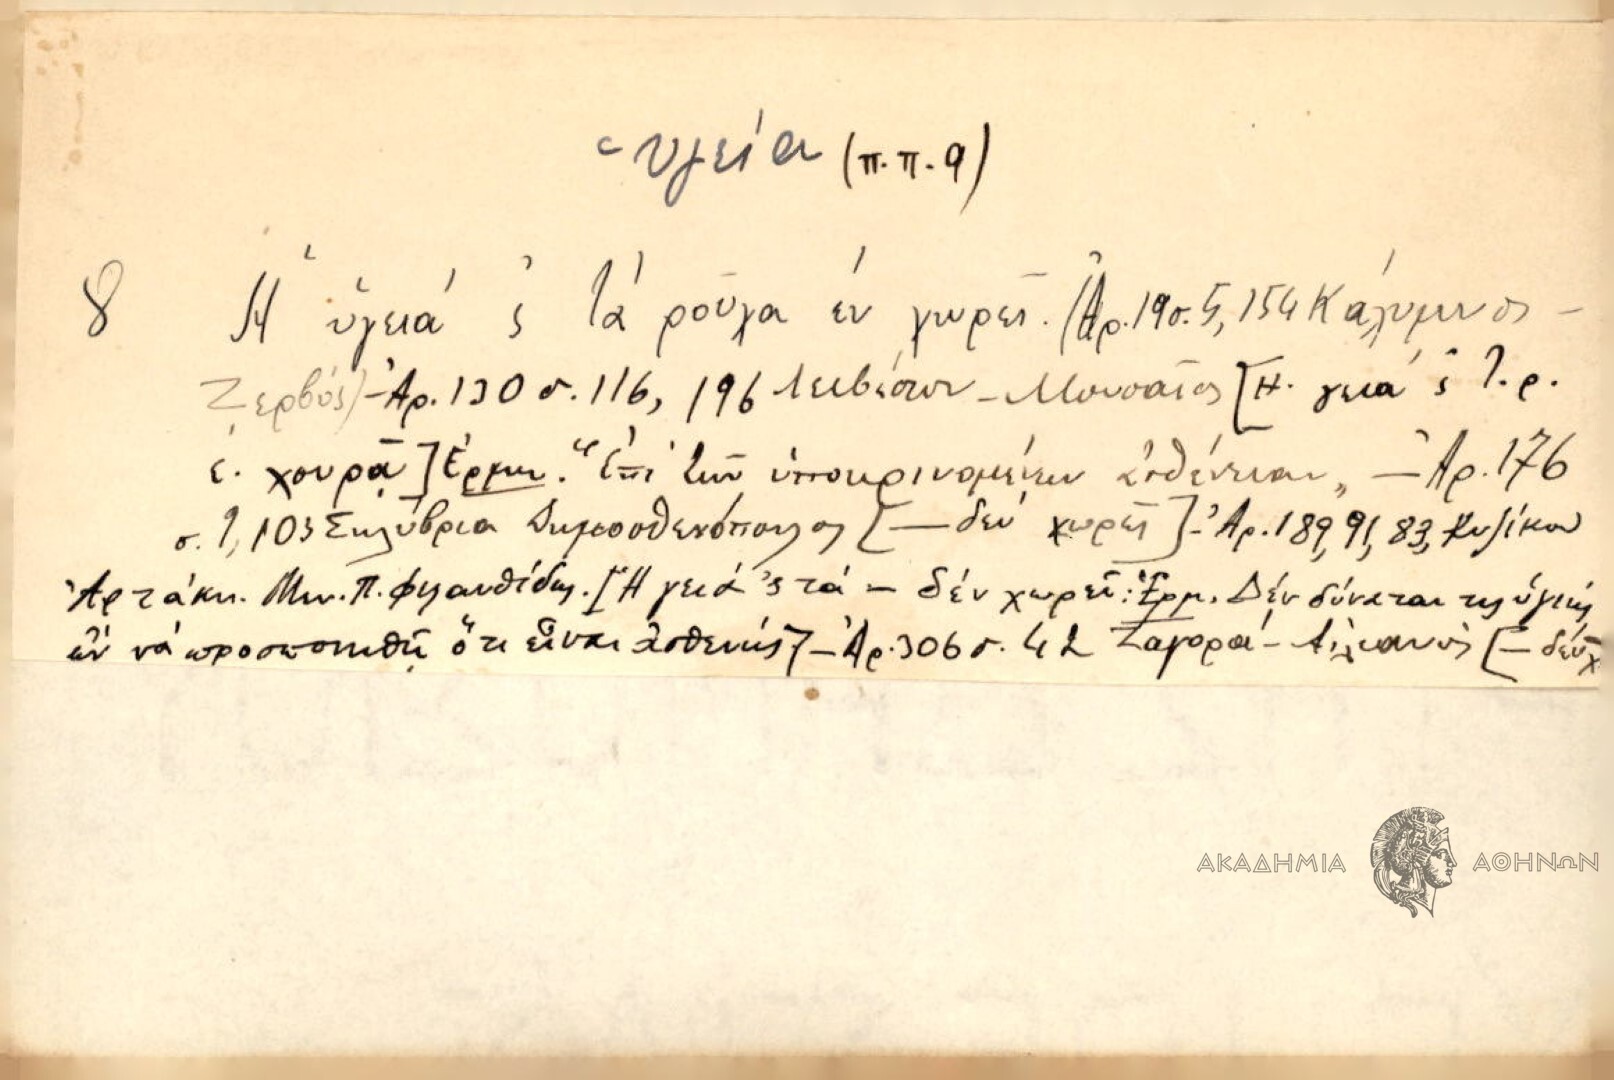 ὑγεία (π.π. 9)
8 Ἡ ὑγειά 'ς τὰ ροῦχα ἐν χωρεῖ. (Ἀρ. 19 σ. 5, 154 Κάλυμνος -
Ζερβός) - Ἀρ. 130 σ. 116, 196 Λεσβιακῶν - Μουσαῖος [Η. γειά 'ς τ. ρ.
ἐ. χουρᾷ] Ἑρμην. "Ἐπὶ τῶν ὑποκρινομένων ἀσθένειαν" - Ἀρ. 176
σ. 7, 103 Σηλύβρια Δημοσθενόπουλος [— δεν χωρεῖ] - Ἀρ. 189, 91, 83, Κυζίκου
Ἀρτάκη. Μιλ. Π. Φιλανθίδης. [Ἡ γειά 'ς τά — δέν χωρεῖ: Ἑρμ. Δέν δύναται τις ὑγιής
ὤν νά προσποιηθῇ ὅτι εἶναι ἀσθενής] - Ἀρ. 306 σ. 42 Ζαγορά - Αἰλιανός [— δέν χ.
ΑΚΑΔΗΜΙΑ ΑΘΗΝΩΝ